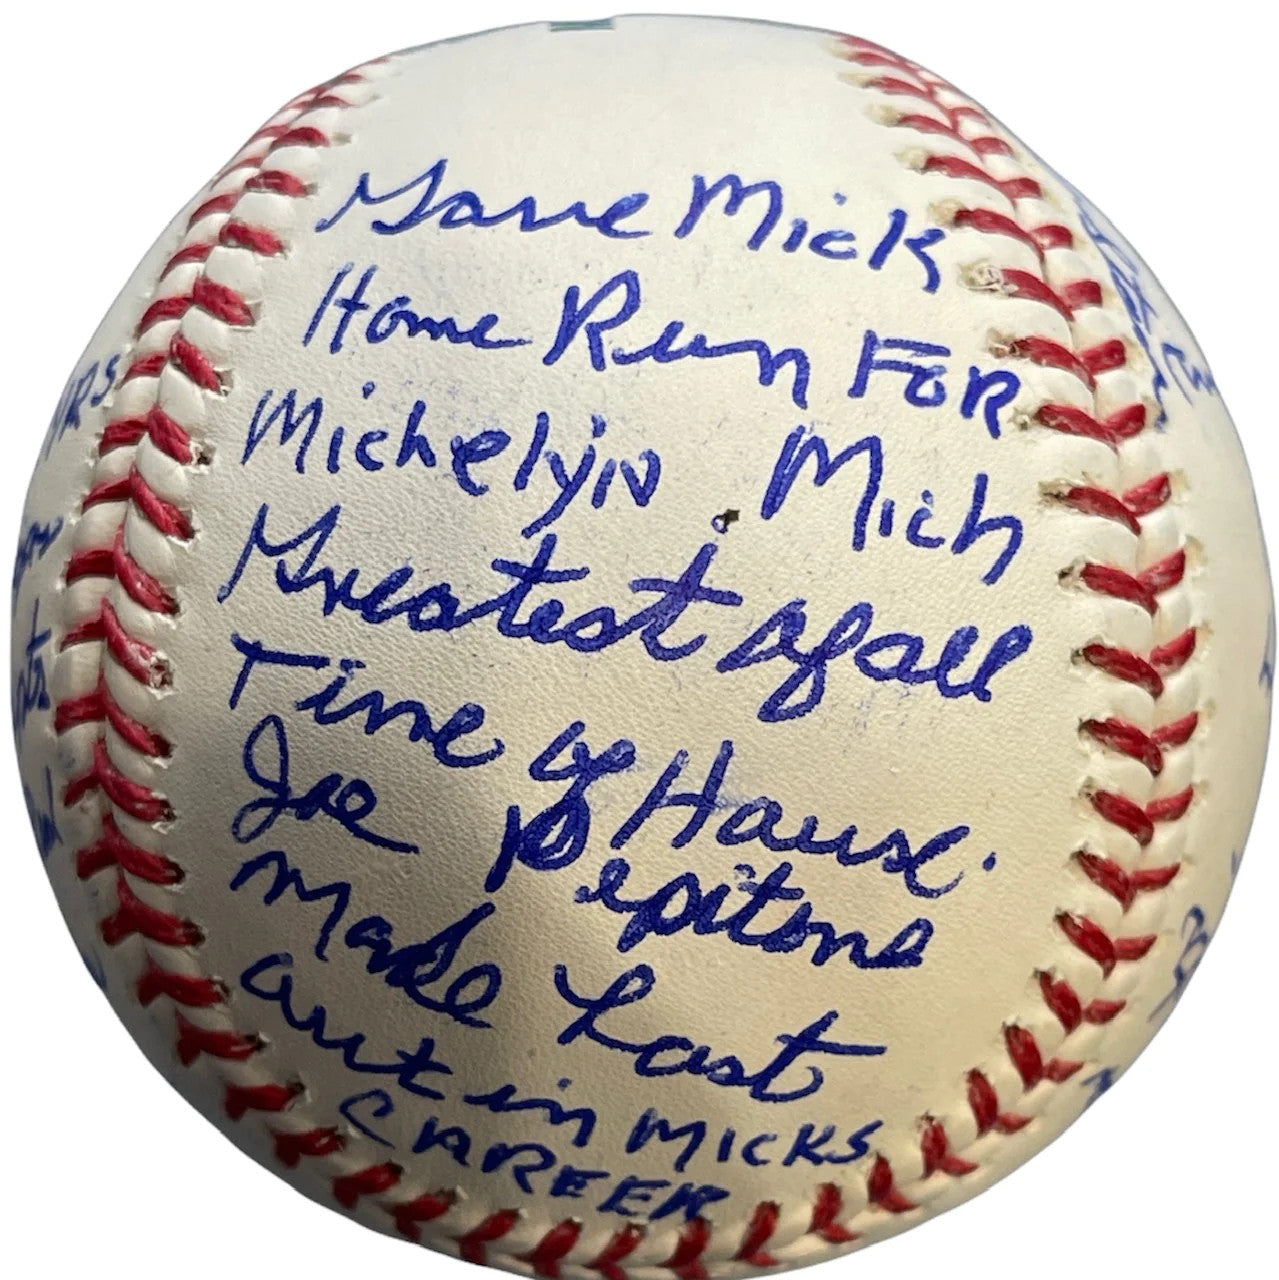 Gave Mick
Home Run FOR
Michelyn Mich
Greatest of all
Time of House.
Joe Pepitone
Made Last
out in MICKS
CAREER